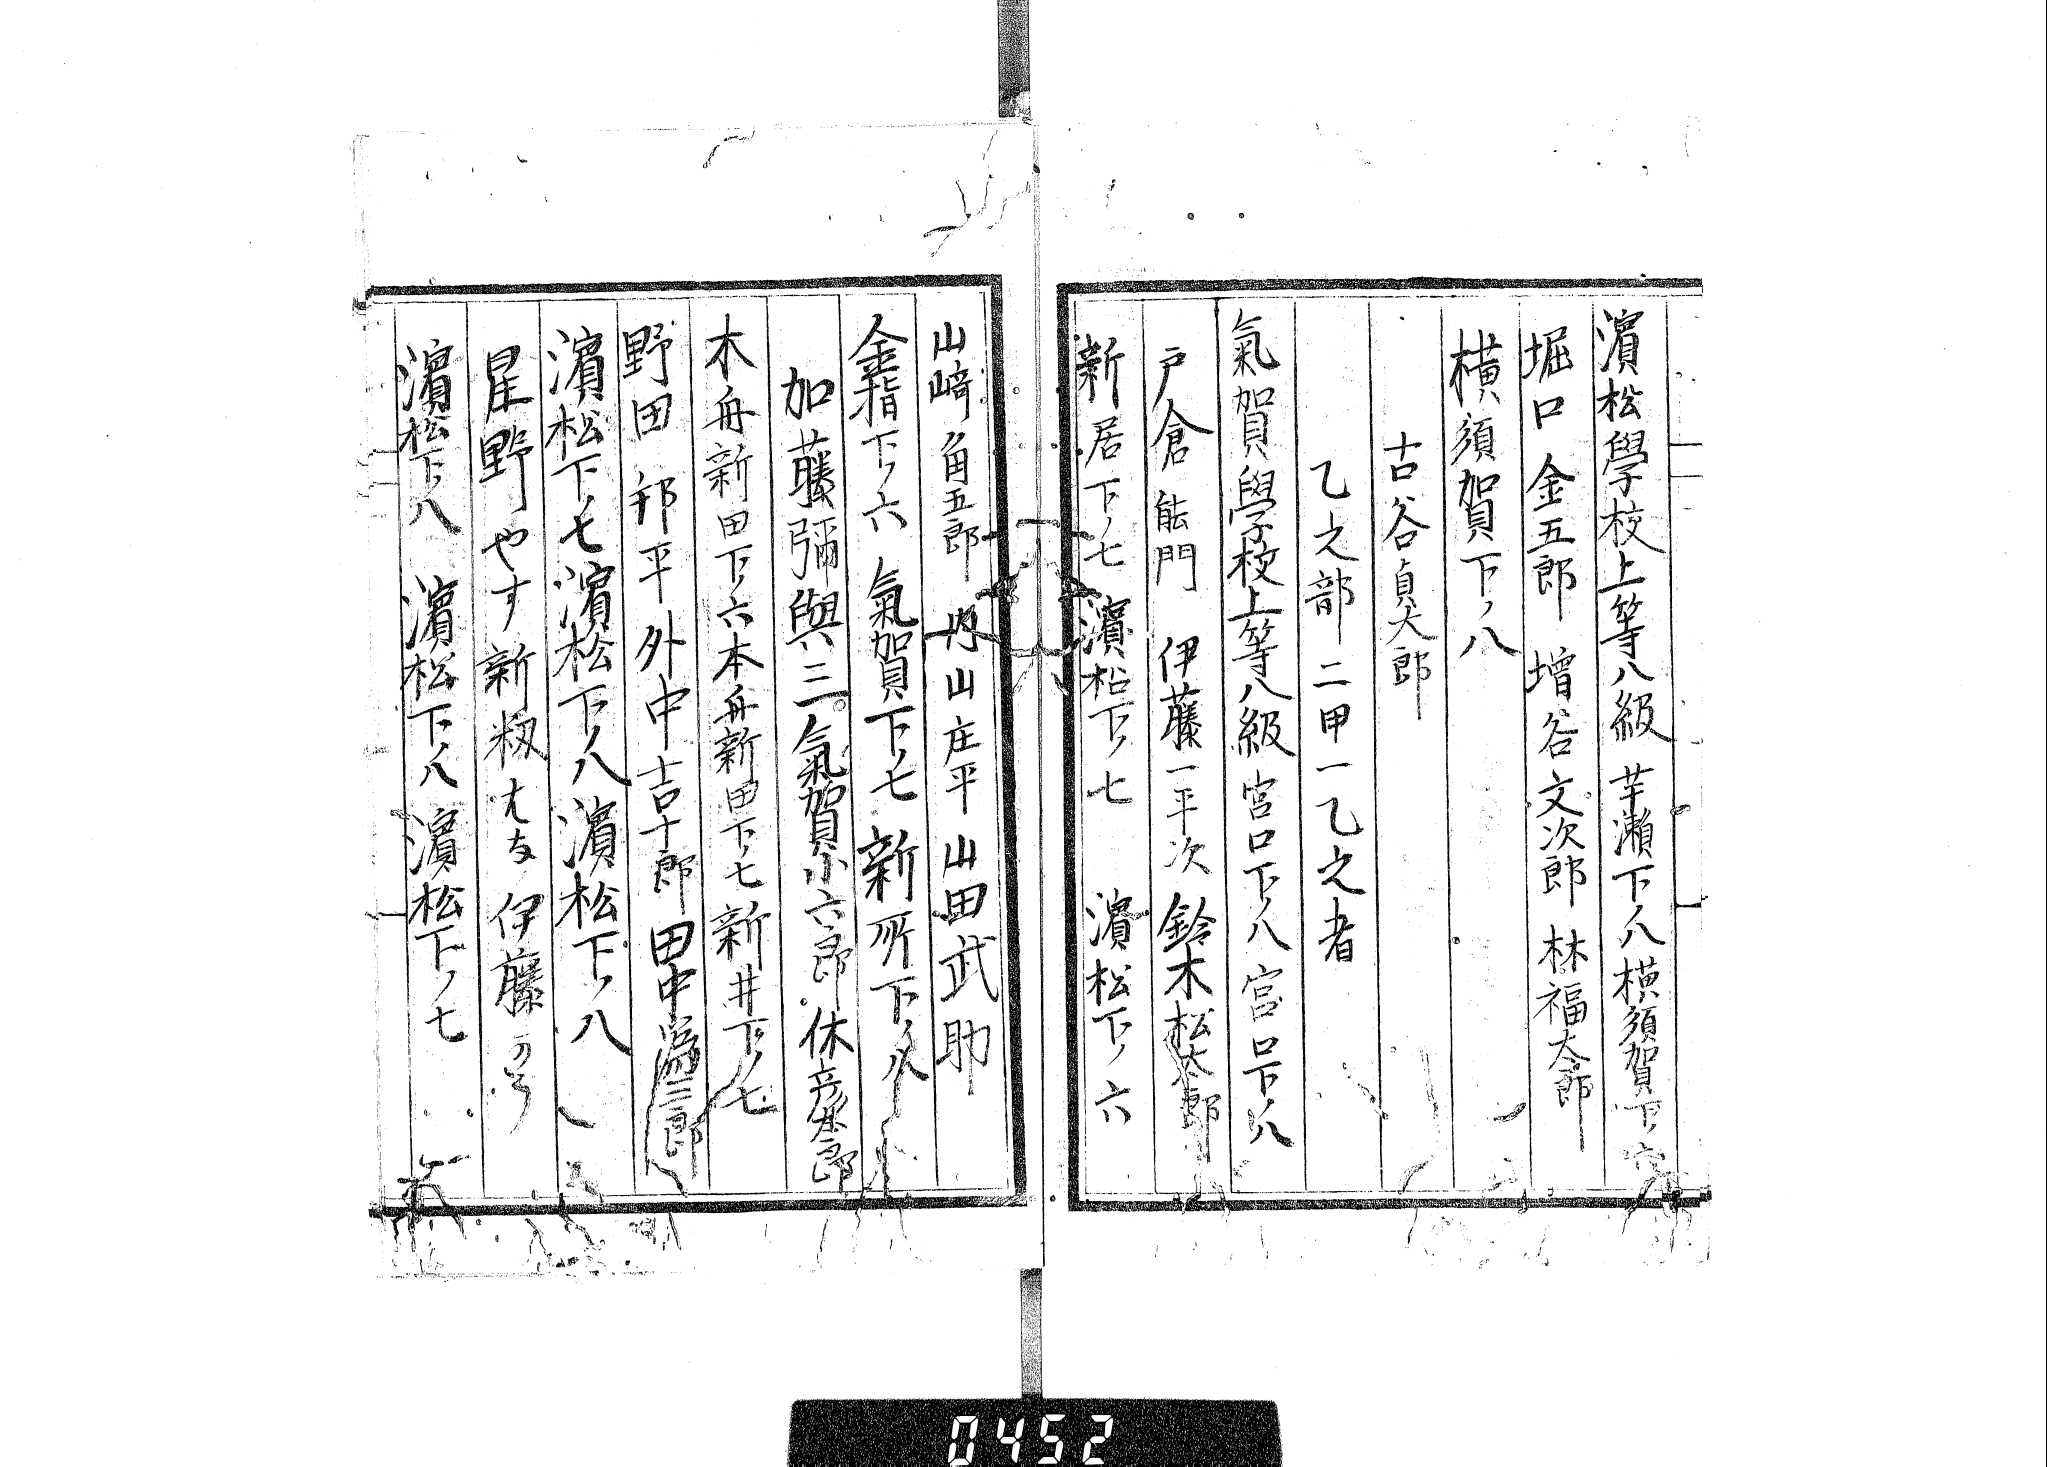 濱松學校上等八級 芋瀬下ノ八 横須賀下ノ六
堀口金五郎 増谷文次郎 林福太郎
横須賀下ノ八
古谷貞太郎
乙之部 二甲一乙之者
氣賀學校上等八級 宮口下ノ八 宮口下ノ八
戸倉能門 伊藤一平次 鈴木松太郎
新居下ノ七 濱松下ノ七 濱松下ノ六
山﨑角五郎 山庄平 山田武助
金指下ノ六 氣賀下ノ七 新所下ノ八
加藤彌與三 氣賀小六郎 休彦郎
木舟新田下ノ六 本舟新田下ノ七 新井下ノ七
野田邦平 外中吉十郎 田中為三郎
濱松下ノ七 濱松下ノ八 濱松下ノ八
星野やす 新 伊藤
濱松下ノ八 濱松下ノ八 濱松下ノ七
0452